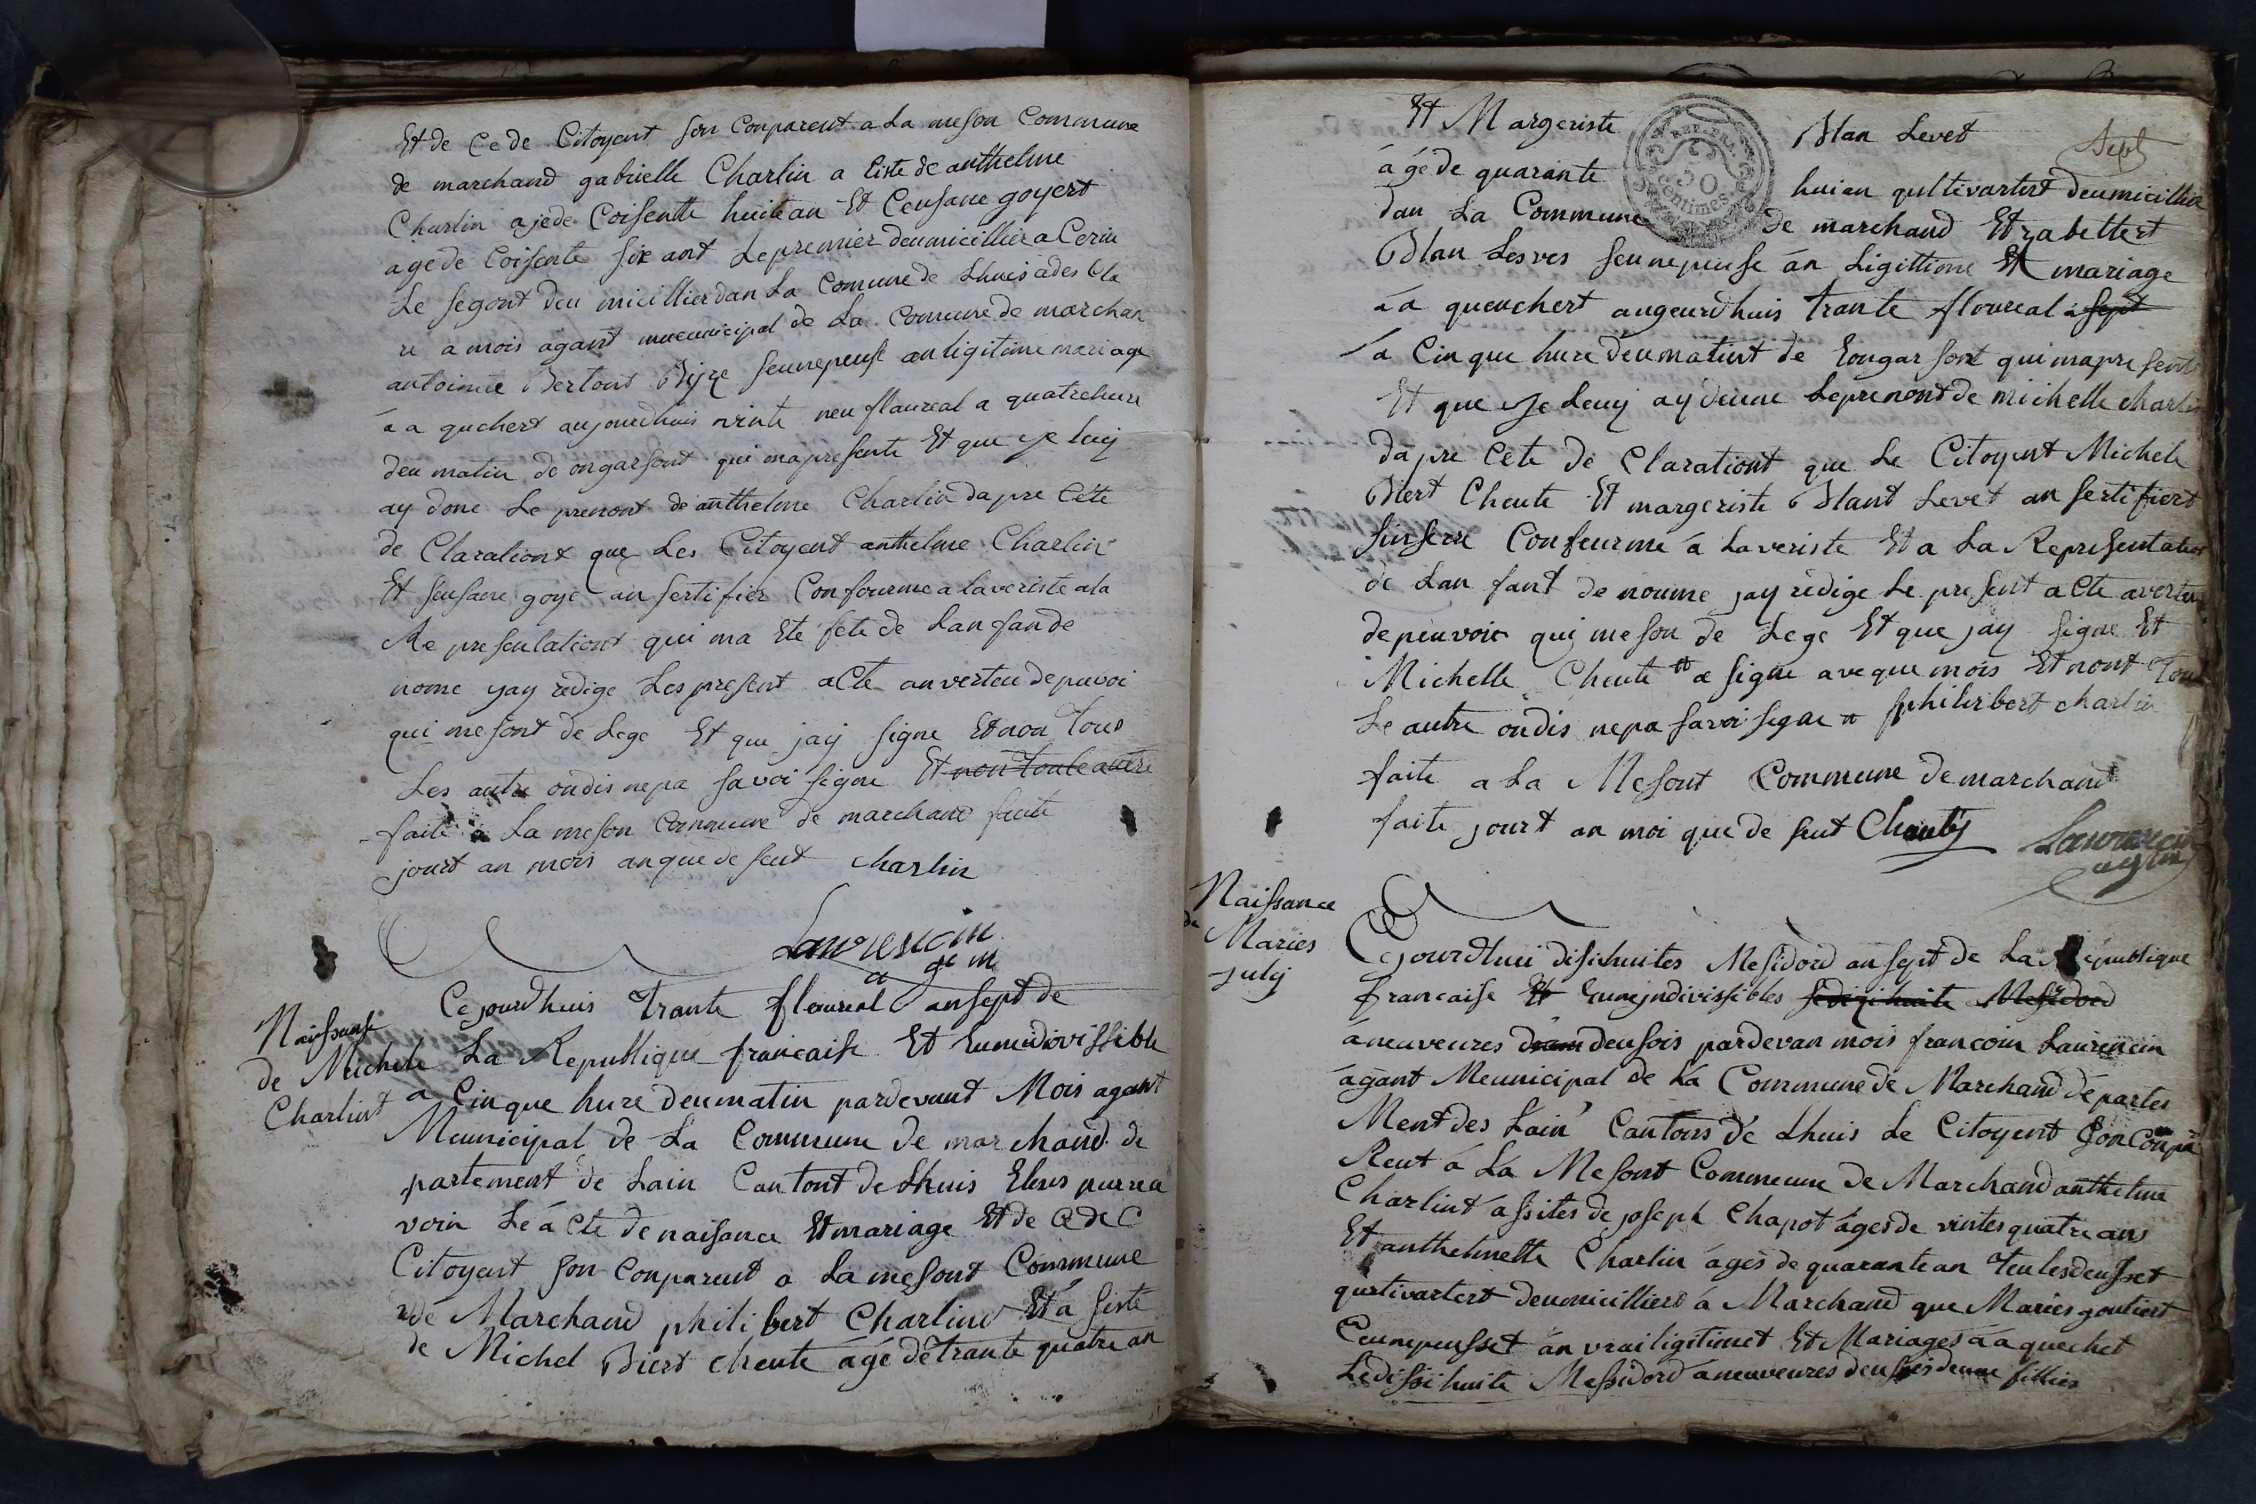 Et de Ce de Citoyent son Conparent a La meson Commune
de marchand gabrielle Charlin a siste de anthelme
Charlin a jede Coisente huite an Et Ceusane goyert
age de Coisente six ant Le premier deumicillier a Cerin
Le segont deu micillier dan La Comune de Lhuis
a mois agant muenicipal de La Comune de marchan
antoinne Bertont seunepeuse an ligitime mariage
a a quchert aujourdhuis vinte neu flaureal a quatrehure
deu matin de ongarsont qui mapresente Et que je luy
ay done Le prenont de anthelme Charlin dapre Cete
de Claraliont que Les Citoyent anthelme Charlin
Et seusane goye an sertifier Confourme a laveriste ala
Re presentationt qui ma Ete fete de Lan fan de
nome jay redige Les present acte anverteu depuvoi
qui mesont de Lege Et que jay signe Et non tous
Les autre ondis nepa savoi signe Et non toute autre
faite a La meson Commune de marchand faite
jourt an mois anque de seut Charlin
Laurencin
agm
Naissanse
de Michele
Charlint
Cejourdhuis trante floureal an sept de
La Republique francaise Et Euneidivissible
a Cinque hure deumatin pardevant Mois agant
Meunicipal de La Commune de marchand de
partement de Lain Cantont de Lhuis Eleus pourrea
voir Le acte de naisance Et mariage Et de Ce de C
Citoyent son Conparent a La mesont Commune
de Marchand philibert Charlind Et a siste
de Michel Biert cheute age de trante quatre an
Sept
Et Margeriste Blan Levet
age de quarante huian qultivartert deumicillier
dan La Commune de marchand Et zabettert
Blan Lesves seunepeuse an Ligittime Et mariage
a a queuchert augeurdhuis trante floureal a sept
a Cinque hure deumatint de Eongarsont qui mapresent
Et que Je Leuy ay deune Leprenont de michelle charlin
dapre Cete de Clarationt que Le Citoyent Michele
Biert Cheute Et margeriste Blant Levet an sertifiert
sinsere Confeurme a La veriste Et a La Representation
de Lan fant de noume jay redige Le present acte averteu
depeuvoir qui me son de Lege Et que jay signe Et
Michelle Cheute a signe aveque mois Et nont Tout
Le autre ondis nepa savoi signe philiribert charlin
faite a La Mesont Commune de marchand
faite jourt an moi que de seut Cheuty
Laurencin
agm
Naissance
de
Maries
july
Cejourdhui disihuites Mesidord an sept de La Republique
francaise Et Euneindivissibles sedizihuite Mesidord
aneuveures deusois pardevan mois francoin Laurencin
agant Meunicipal de La Commune de Marchand departes
Ment des Lain Cantons de Lhuis Le Citoyent Son Conpa
Rent a La Mesont Commeune de Marchand anthelme
Charlint assites de joseph Chapot ages de vintes quatre ans
Et anthelmette Charlin ages de quarante an teulesdeusset
qurtivartert deumicilliers a Marchand que Maries goutiert
Ceunepeusset an vrailigitimet Et Mariages a a quechet
Ledissihuite Messidord aneuveures deusois deune fillies